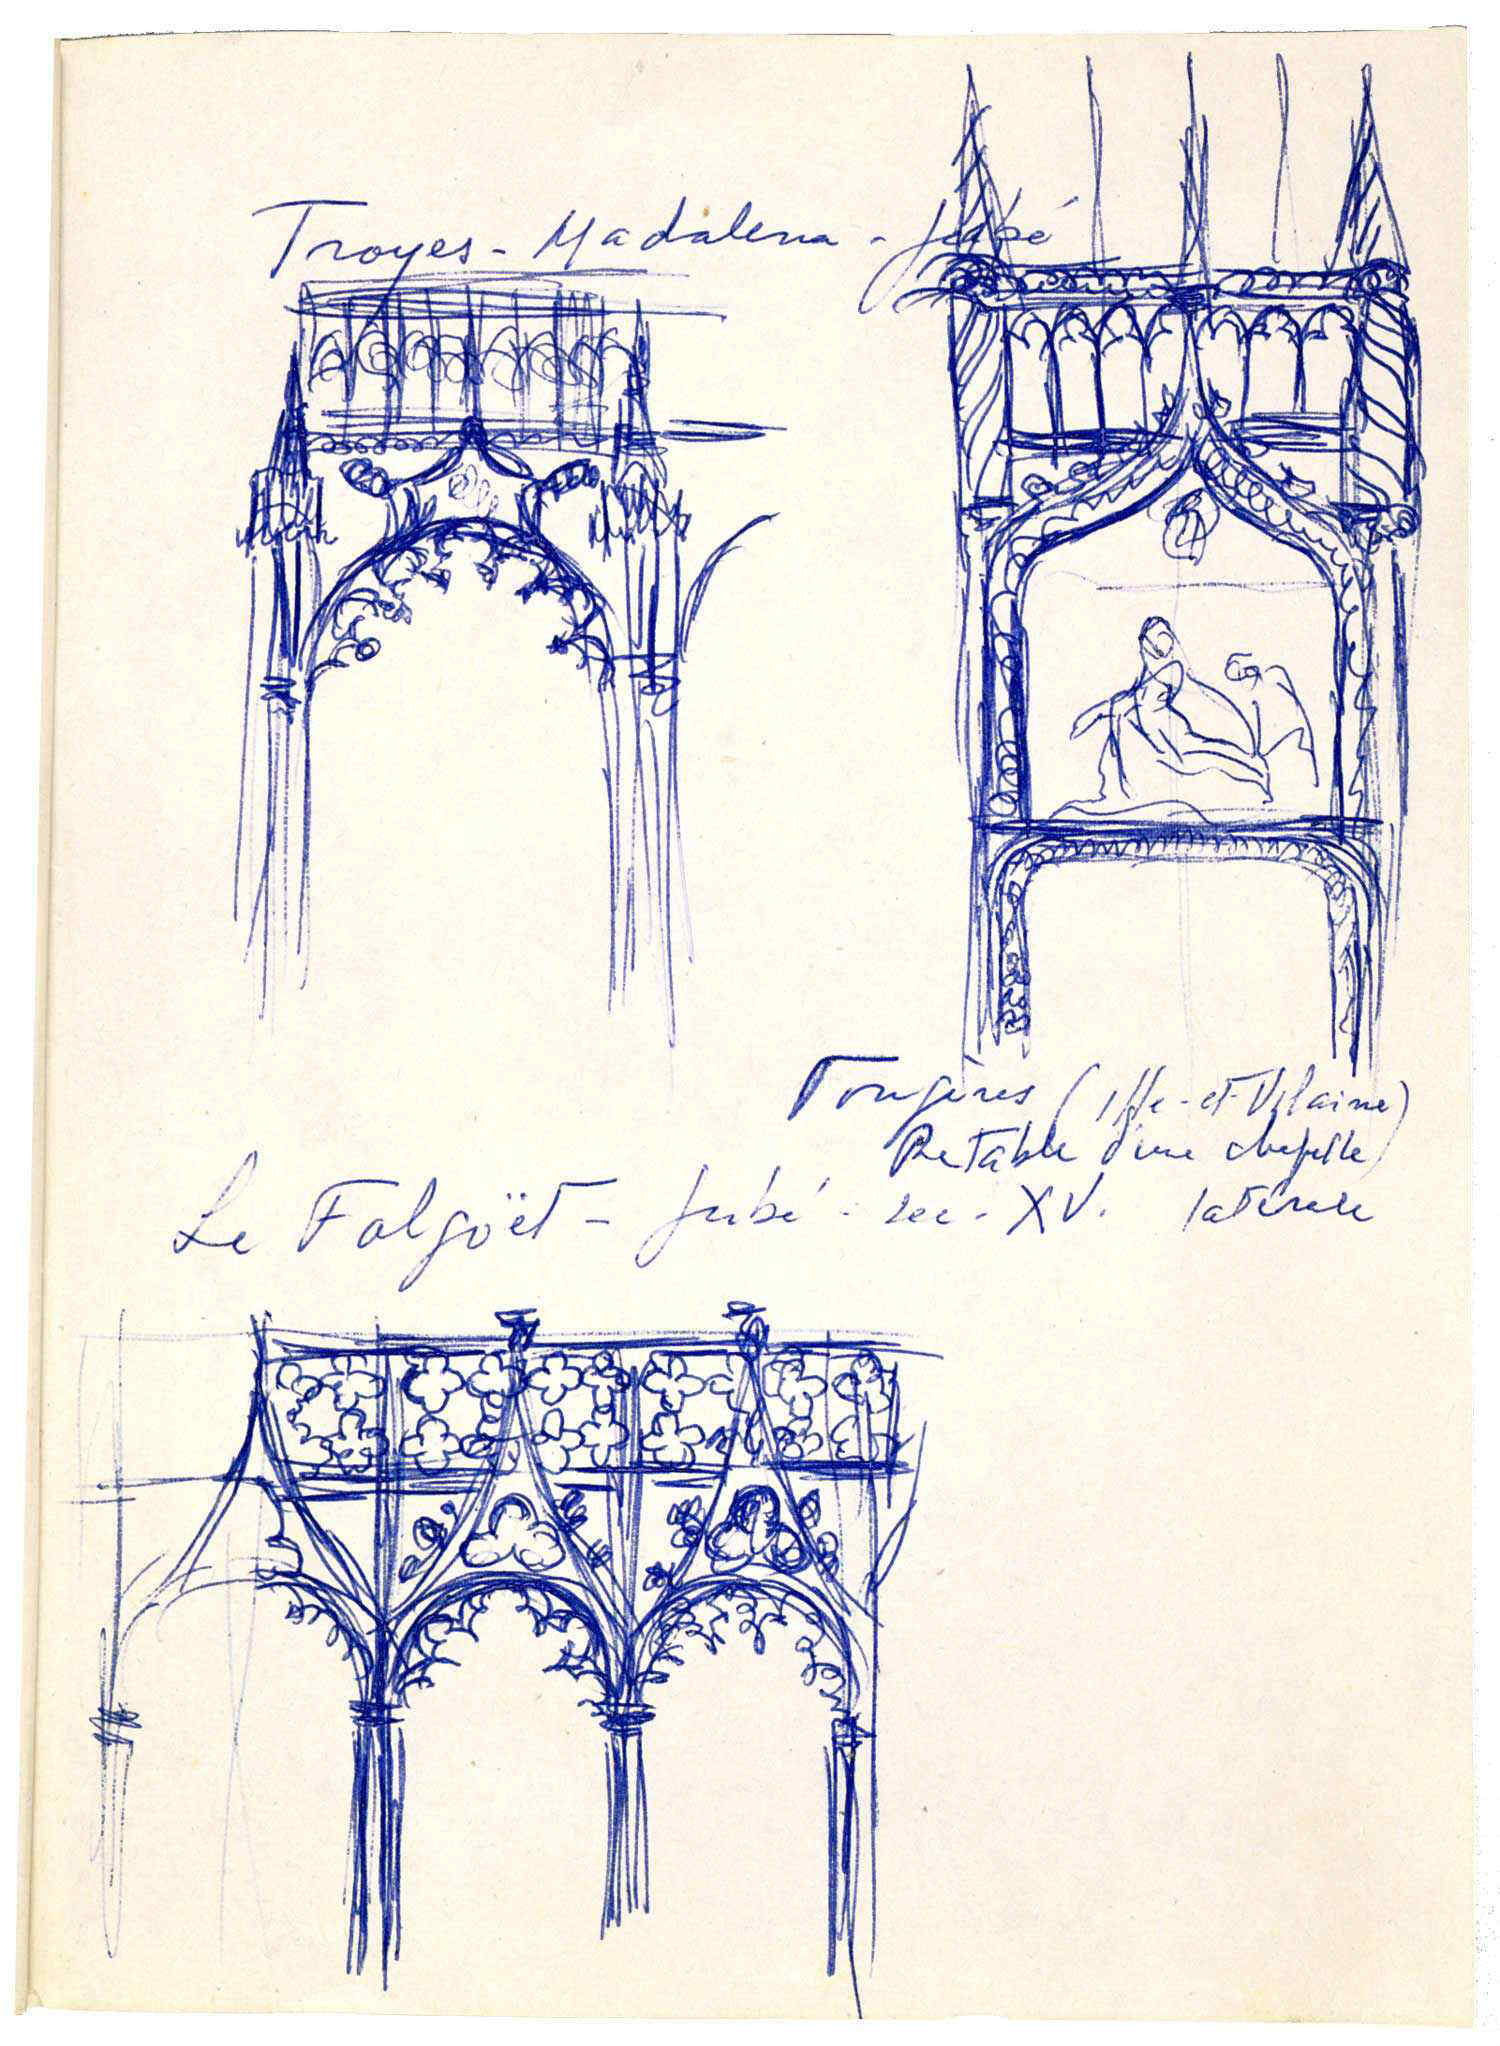 Troyes - Madalena - Jubé
Fougères (Ille-et-Vilaine)
Retable d'une chapelle
latérale
Le Folgoët - Jubé - sec. XV.